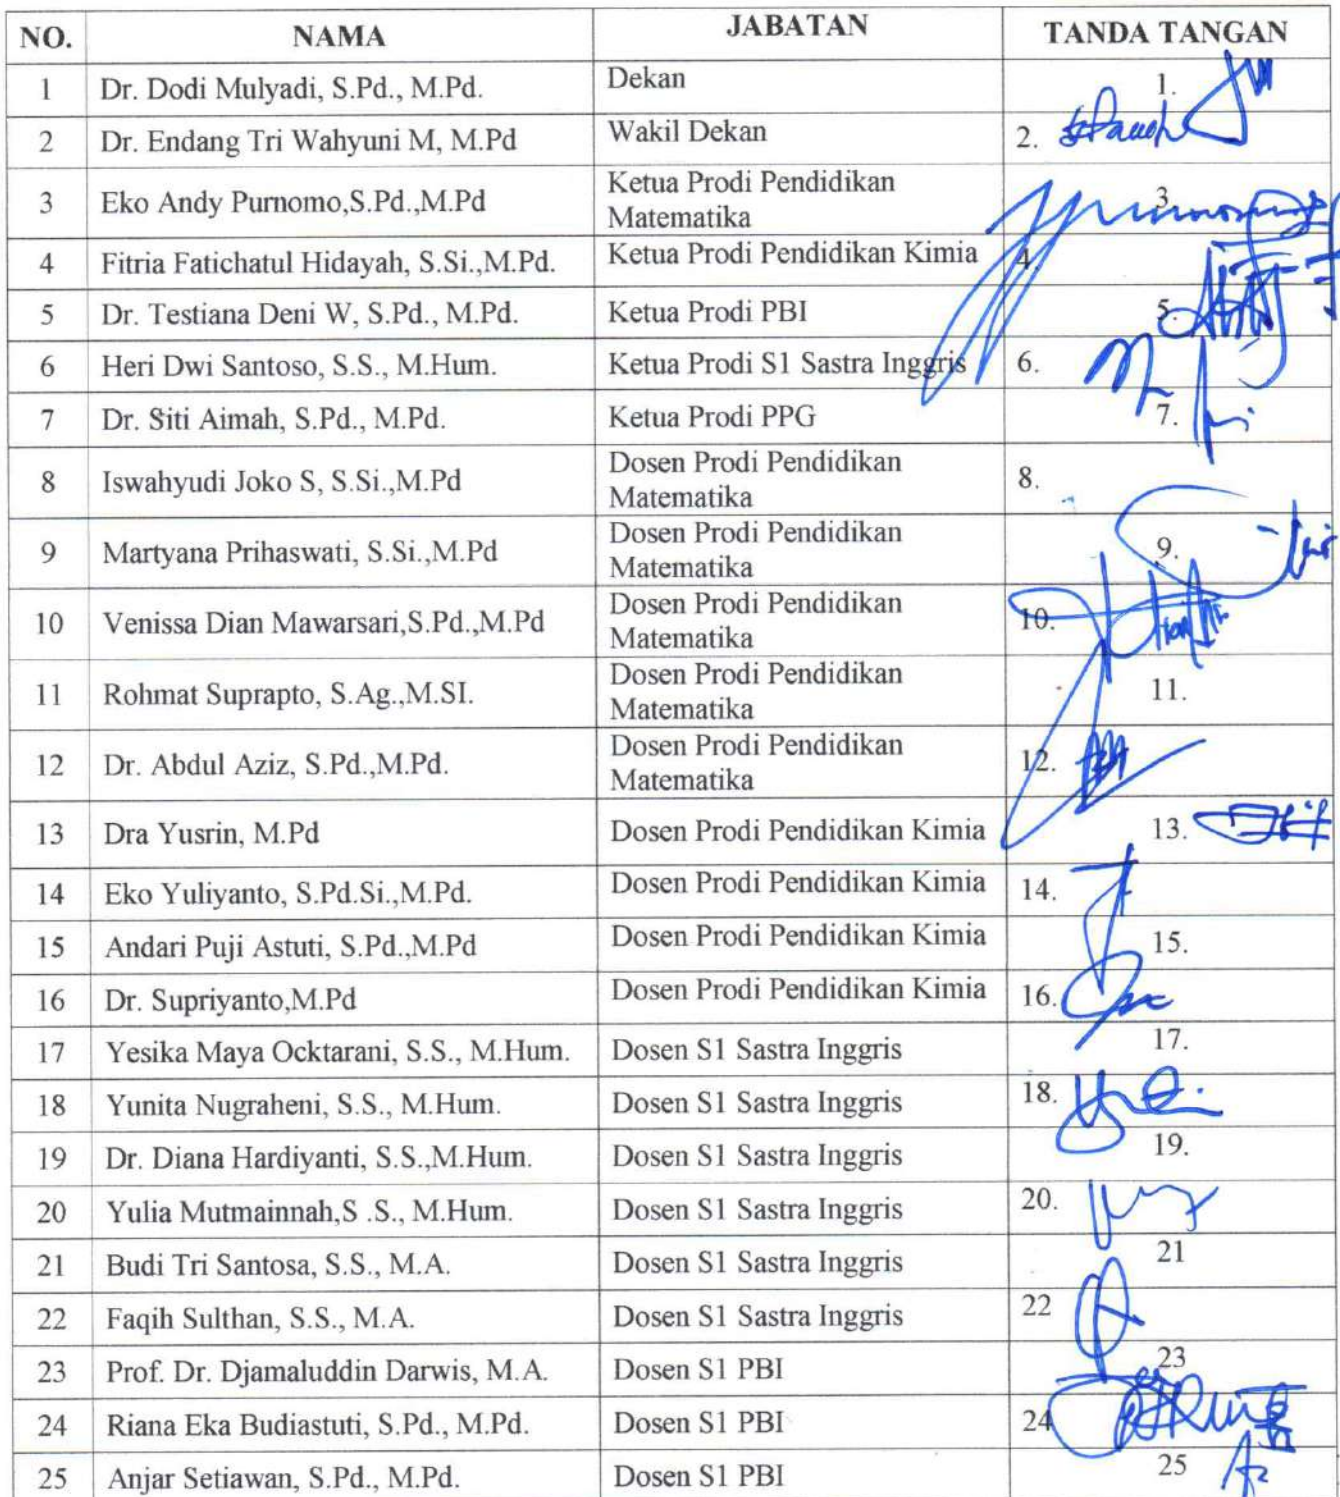 NO. NAMA JABATAN TANDA TANGAN
1 Dr. Dodi Mulyadi, S.Pd., M.Pd. Dekan 1.
2 Dr. Endang Tri Wahyuni M, M.Pd Wakil Dekan 2.
3 Eko Andy Purnomo,S.Pd.,M.Pd Ketua Prodi Pendidikan 3.
Matematika
4 Fitria Fatichatul Hidayah, S.Si.,M.Pd. Ketua Prodi Pendidikan Kimia 4.
5 Dr. Testiana Deni W, S.Pd., M.Pd. Ketua Prodi PBI 5.
6 Heri Dwi Santoso, S.S., M.Hum. Ketua Prodi S1 Sastra Inggris 6.
7 Dr. Siti Aimah, S.Pd., M.Pd. Ketua Prodi PPG 7.
8 Iswahyudi Joko S, S.Si.,M.Pd Dosen Prodi Pendidikan 8.
Matematika
9 Martyana Prihaswati, S.Si.,M.Pd Dosen Prodi Pendidikan 9.
Matematika
10 Venissa Dian Mawarsari,S.Pd.,M.Pd Dosen Prodi Pendidikan 10.
Matematika
11 Rohmat Suprapto, S.Ag.,M.SI. Dosen Prodi Pendidikan 11.
Matematika
12 Dr. Abdul Aziz, S.Pd.,M.Pd. Dosen Prodi Pendidikan 12.
Matematika
13 Dra Yusrin, M.Pd Dosen Prodi Pendidikan Kimia 13.
14 Eko Yuliyanto, S.Pd.Si.,M.Pd. Dosen Prodi Pendidikan Kimia 14.
15 Andari Puji Astuti, S.Pd.,M.Pd Dosen Prodi Pendidikan Kimia 15.
16 Dr. Supriyanto,M.Pd Dosen Prodi Pendidikan Kimia 16.
17 Yesika Maya Ocktarani, S.S., M.Hum. Dosen S1 Sastra Inggris 17.
18 Yunita Nugraheni, S.S., M.Hum. Dosen S1 Sastra Inggris 18.
19 Dr. Diana Hardiyanti, S.S.,M.Hum. Dosen S1 Sastra Inggris 19.
20 Yulia Mutmainnah,S .S., M.Hum. Dosen S1 Sastra Inggris 20.
21 Budi Tri Santosa, S.S., M.A. Dosen S1 Sastra Inggris 21
22 Faqih Sulthan, S.S., M.A. Dosen S1 Sastra Inggris 22
23 Prof. Dr. Djamaluddin Darwis, M.A. Dosen S1 PBI 23
24 Riana Eka Budiastuti, S.Pd., M.Pd. Dosen S1 PBI 24
25 Anjar Setiawan, S.Pd., M.Pd. Dosen S1 PBI 25